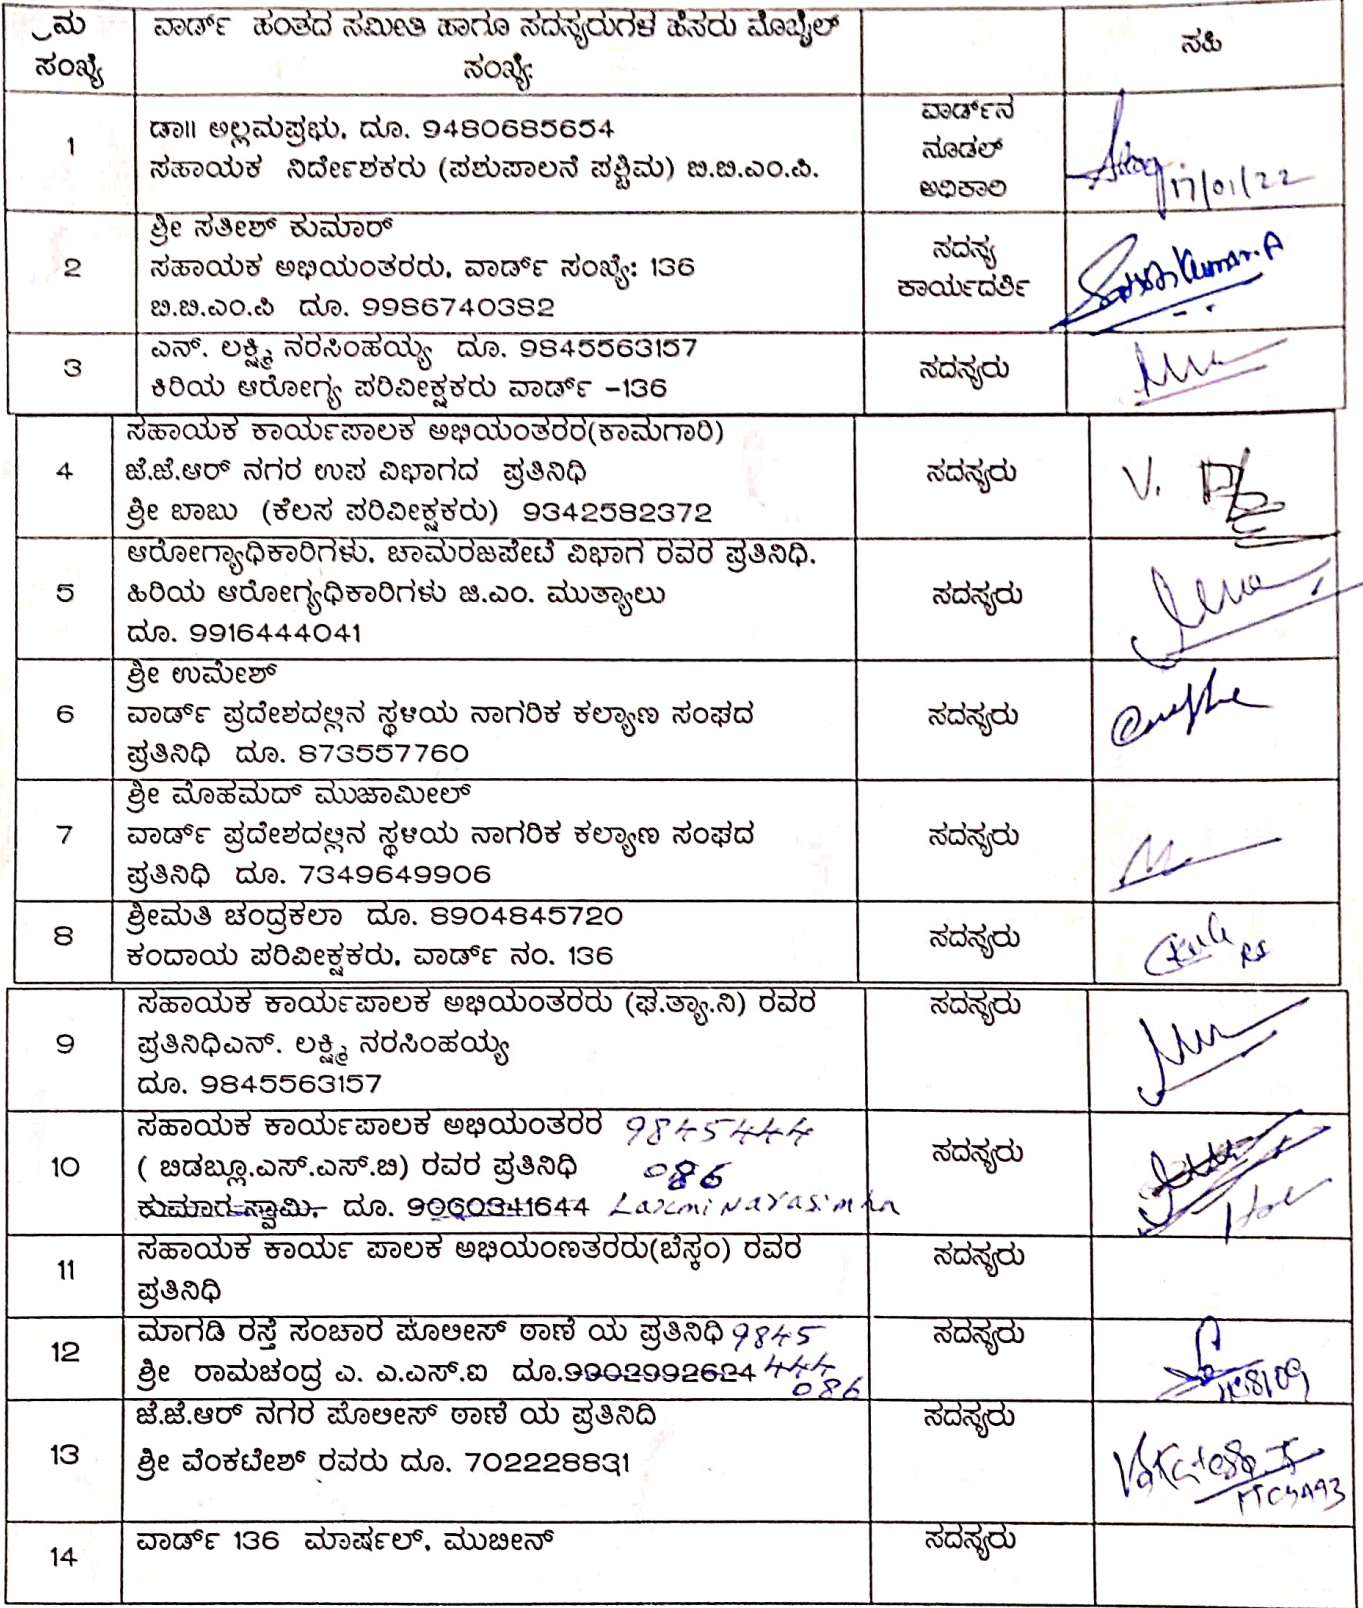 ಕ್ರಮ ಸಂಖ್ಯೆ
ವಾರ್ಡ್ ಹಂತದ ಸಮೀತಿ ಹಾಗೂ ಸದಸ್ಯರುಗಳ ಹೆಸರು ಮೊಬೈಲ್
ಸಂಖ್ಯೆ:
ಸಹಿ
1
ಡಾ॥ ಅಲ್ಲಮಪ್ರಭು, ದೂ. 9480685654
ಸಹಾಯಕ ನಿರ್ದೇಶಕರು (ಪಶುಪಾಲನೆ ಪಶ್ಚಿಮ) ಬಿ.ಬಿ.ಎಂ.ಪಿ.
ವಾರ್ಡ್‌ನ
ನೂಡಲ್
ಅಧಿಕಾರಿ
17/01/22
2
ಶ್ರೀ ಸತೀಶ್ ಕುಮಾರ್
ಸಹಾಯಕ ಅಭಿಯಂತರರು, ವಾರ್ಡ್ ಸಂಖ್ಯೆ: 136
ಬಿ.ಬಿ.ಎಂ.ಪಿ ದೂ. 9986740382
ಸದಸ್ಯ
ಕಾರ್ಯದರ್ಶಿ
Kumar.A
3
ಎನ್. ಲಕ್ಷ್ಮಿ ನರಸಿಂಹಯ್ಯ ದೂ. 9845563157
ಕಿರಿಯ ಆರೋಗ್ಯ ಪರಿವೀಕ್ಷಕರು ವಾರ್ಡ್ -136
ಸದಸ್ಯರು
4
ಸಹಾಯಕ ಕಾರ್ಯಪಾಲಕ ಅಭಿಯಂತರರ(ಕಾಮಗಾರಿ)
ಜೆ.ಜೆ.ಆರ್ ನಗರ ಉಪ ವಿಭಾಗದ ಪ್ರತಿನಿಧಿ
ಶ್ರೀ ಬಾಬು (ಕೆಲಸ ಪರಿವೀಕ್ಷಕರು) 9342582372
ಸದಸ್ಯರು
V.
5
ಆರೋಗ್ಯಾಧಿಕಾರಿಗಳು, ಚಾಮರಜಪೇಟೆ ವಿಭಾಗ ರವರ ಪ್ರತಿನಿಧಿ.
ಹಿರಿಯ ಆರೋಗ್ಯಧಿಕಾರಿಗಳು ಜಿ.ಎಂ. ಮುತ್ಯಾಲು
ದೂ. 9916444041
ಸದಸ್ಯರು
6
ಶ್ರೀ ಉಮೇಶ್
ವಾರ್ಡ್ ಪ್ರದೇಶದಲ್ಲಿನ ಸ್ಥಳಿಯ ನಾಗರಿಕ ಕಲ್ಯಾಣ ಸಂಘದ
ಪ್ರತಿನಿಧಿ ದೂ. 873557760
ಸದಸ್ಯರು
7
ಶ್ರೀ ಮೊಹಮದ್ ಮುಜಾಮೀಲ್
ವಾರ್ಡ್ ಪ್ರದೇಶದಲ್ಲಿನ ಸ್ಥಳಿಯ ನಾಗರಿಕ ಕಲ್ಯಾಣ ಸಂಘದ
ಪ್ರತಿನಿಧಿ ದೂ. 7349649906
ಸದಸ್ಯರು
8
ಶ್ರೀಮತಿ ಚಂದ್ರಕಲಾ ದೂ. 8904845720
ಕಂದಾಯ ಪರಿವೀಕ್ಷಕರು, ವಾರ್ಡ್ ನಂ. 136
ಸದಸ್ಯರು
9
ಸಹಾಯಕ ಕಾರ್ಯಪಾಲಕ ಅಭಿಯಂತರರು (ಘ.ತ್ಯಾ.ನಿ) ರವರ
ಪ್ರತಿನಿಧಿಎನ್. ಲಕ್ಷ್ಮಿ ನರಸಿಂಹಯ್ಯ
ದೂ. 9845563157
ಸದಸ್ಯರು
10
ಸಹಾಯಕ ಕಾರ್ಯಪಾಲಕ ಅಭಿಯಂತರರ 9845444
( ಬಿಡಬ್ಲೂ.ಎಸ್.ಎಸ್.ಬಿ) ರವರ ಪ್ರತಿನಿಧಿ 086
ಕುಮಾರ ಸ್ವಾಮಿ, ದೂ. 9060341644 Laxmi Narasimha
ಸದಸ್ಯರು
11
ಸಹಾಯಕ ಕಾರ್ಯ ಪಾಲಕ ಅಭಿಯಂಣತರರು(ಬೆಸ್ಕಂ) ರವರ
ಪ್ರತಿನಿಧಿ
ಸದಸ್ಯರು
12
ಮಾಗಡಿ ರಸ್ತೆ ಸಂಚಾರ ಪೊಲೀಸ್ ಠಾಣೆ ಯ ಪ್ರತಿನಿಧಿ 9845
ಶ್ರೀ ರಾಮಚಂದ್ರ ಎ. ಎ.ಎಸ್.ಐ ದೂ.9902992624 444
086
ಸದಸ್ಯರು
13
ಜೆ.ಜೆ.ಆರ್ ನಗರ ಪೊಲೀಸ್ ಠಾಣೆ ಯ ಪ್ರತಿನಿದಿ
ಶ್ರೀ ವೆಂಕಟೇಶ್ ರವರು ದೂ. 702228831
ಸದಸ್ಯರು
14
ವಾರ್ಡ್ 136 ಮಾರ್ಷಲ್, ಮುಬೀನ್
ಸದಸ್ಯರು